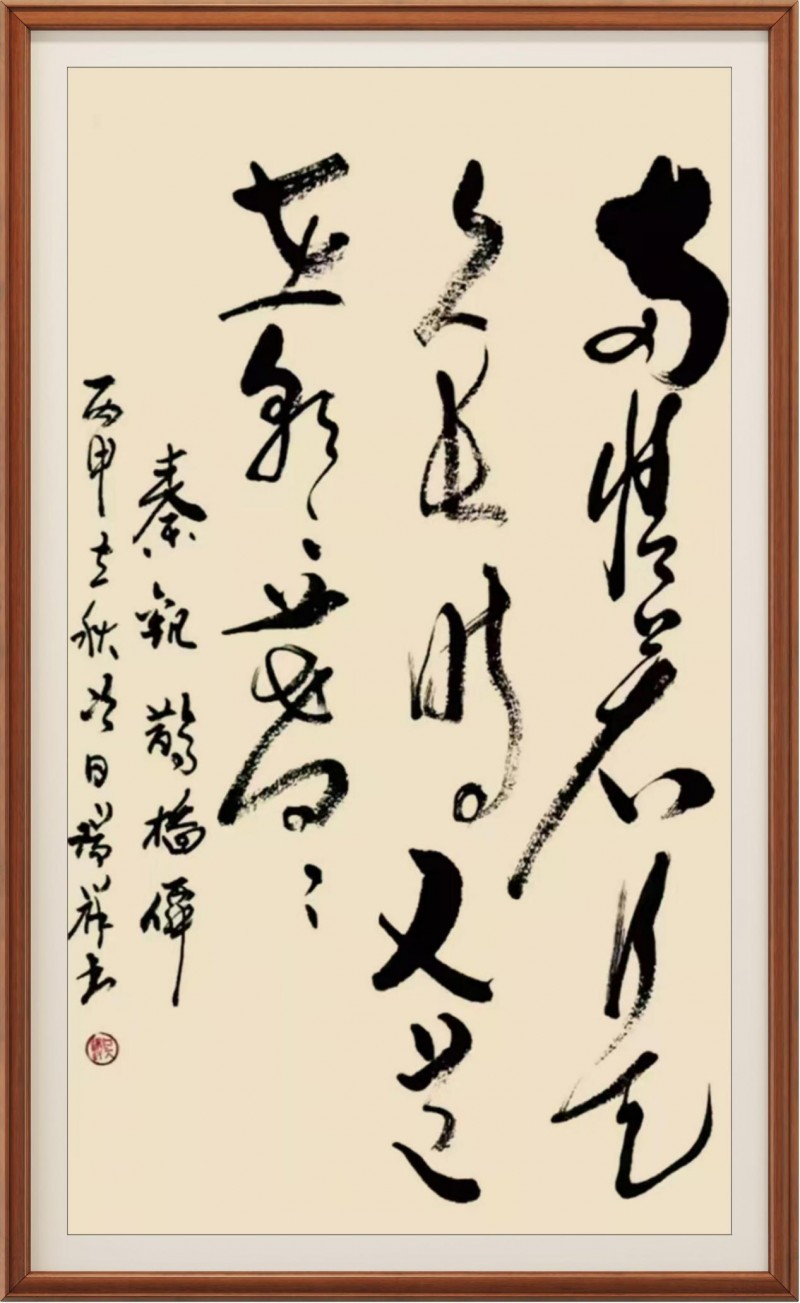 两情若是
久长时又岂
在朝朝暮暮
秦观 鹊桥仙
丙申之秋冬日瑞祥书